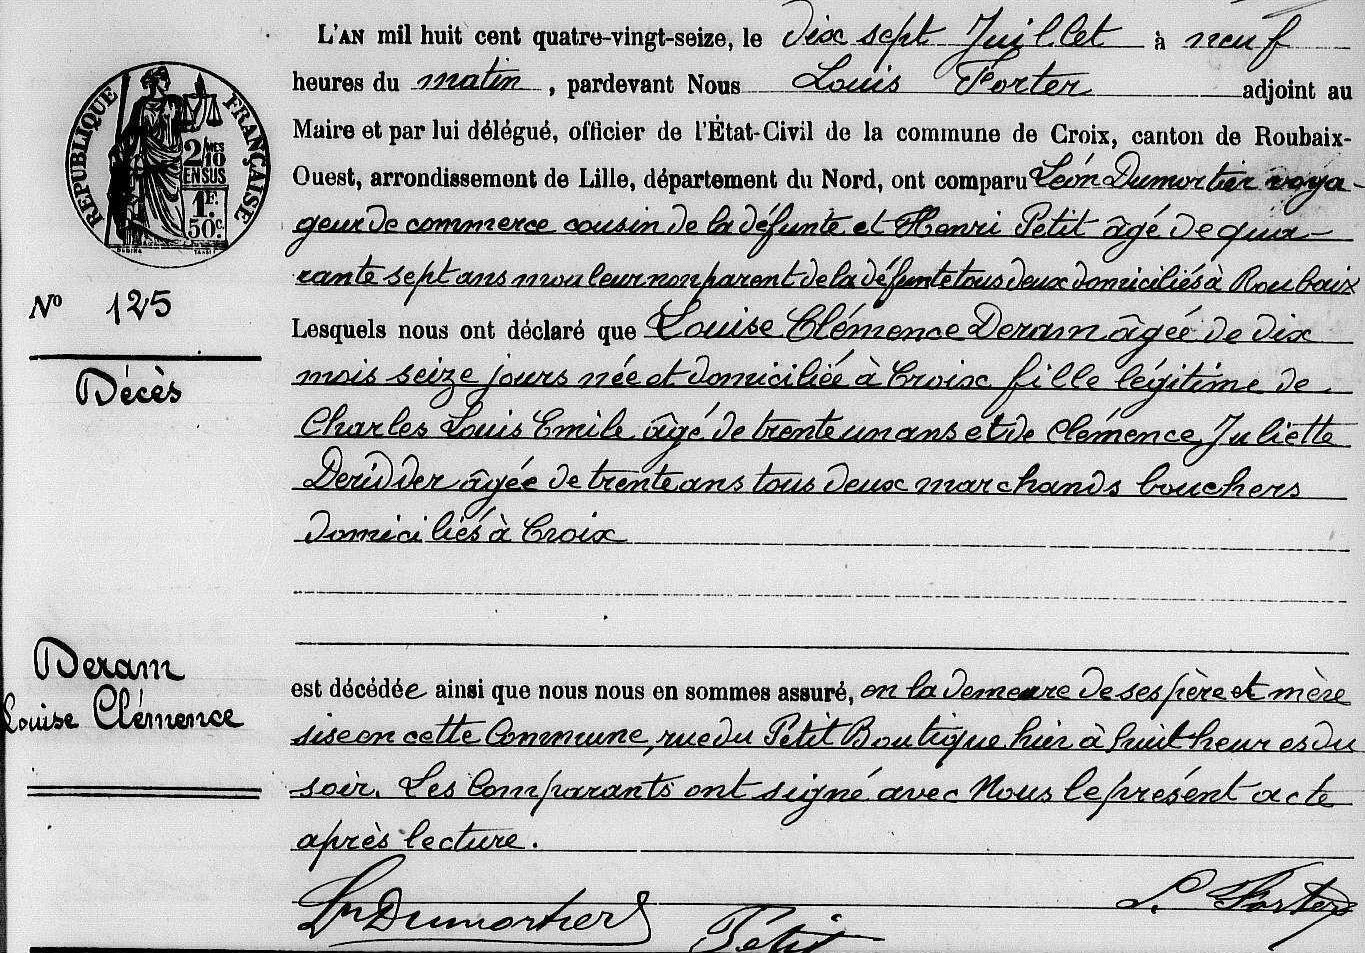 L'AN mil huit cent quatre-vingt-seize, le dix sept Juillet à neuf
heures du matin, pardevant Nous Louis Forter adjoint au
Maire et par lui délégué, officier de l'État-Civil de la commune de Croix, canton de Roubaix-
Ouest, arrondissement de Lille, département du Nord, ont comparu Léon Dumortier voya-
geur de commerce cousin de la défunte et Henri Petit âgé de qua-
rante sept ans mouleur non parent de la défunte tous deux domiciliés à Roubaix
Lesquels nous ont déclaré que Louise Clémence Deram âgée de dix
mois seize jours née et domiciliée à Croix fille légitime de
Charles Louis Emile âgé de trente un ans et de Clémence Juliette
Deridder âgée de trente ans tous deux marchands bouchers
domiciliés à Croix
est décédée ainsi que nous nous en sommes assuré, en la demeure de ses père et mère
sise en cette Commune, rue du Petit Boutique hier à huit heures du
soir. Les Comparants ont signé avec Nous le présent acte
après lecture.
Ln Dumortier
Petit
L. Forter
RÉPUBLIQUE FRANÇAISE
2/10 MES
EN SUS
1F.
50c.
No 125
Décès
Deram
Louise Clémence